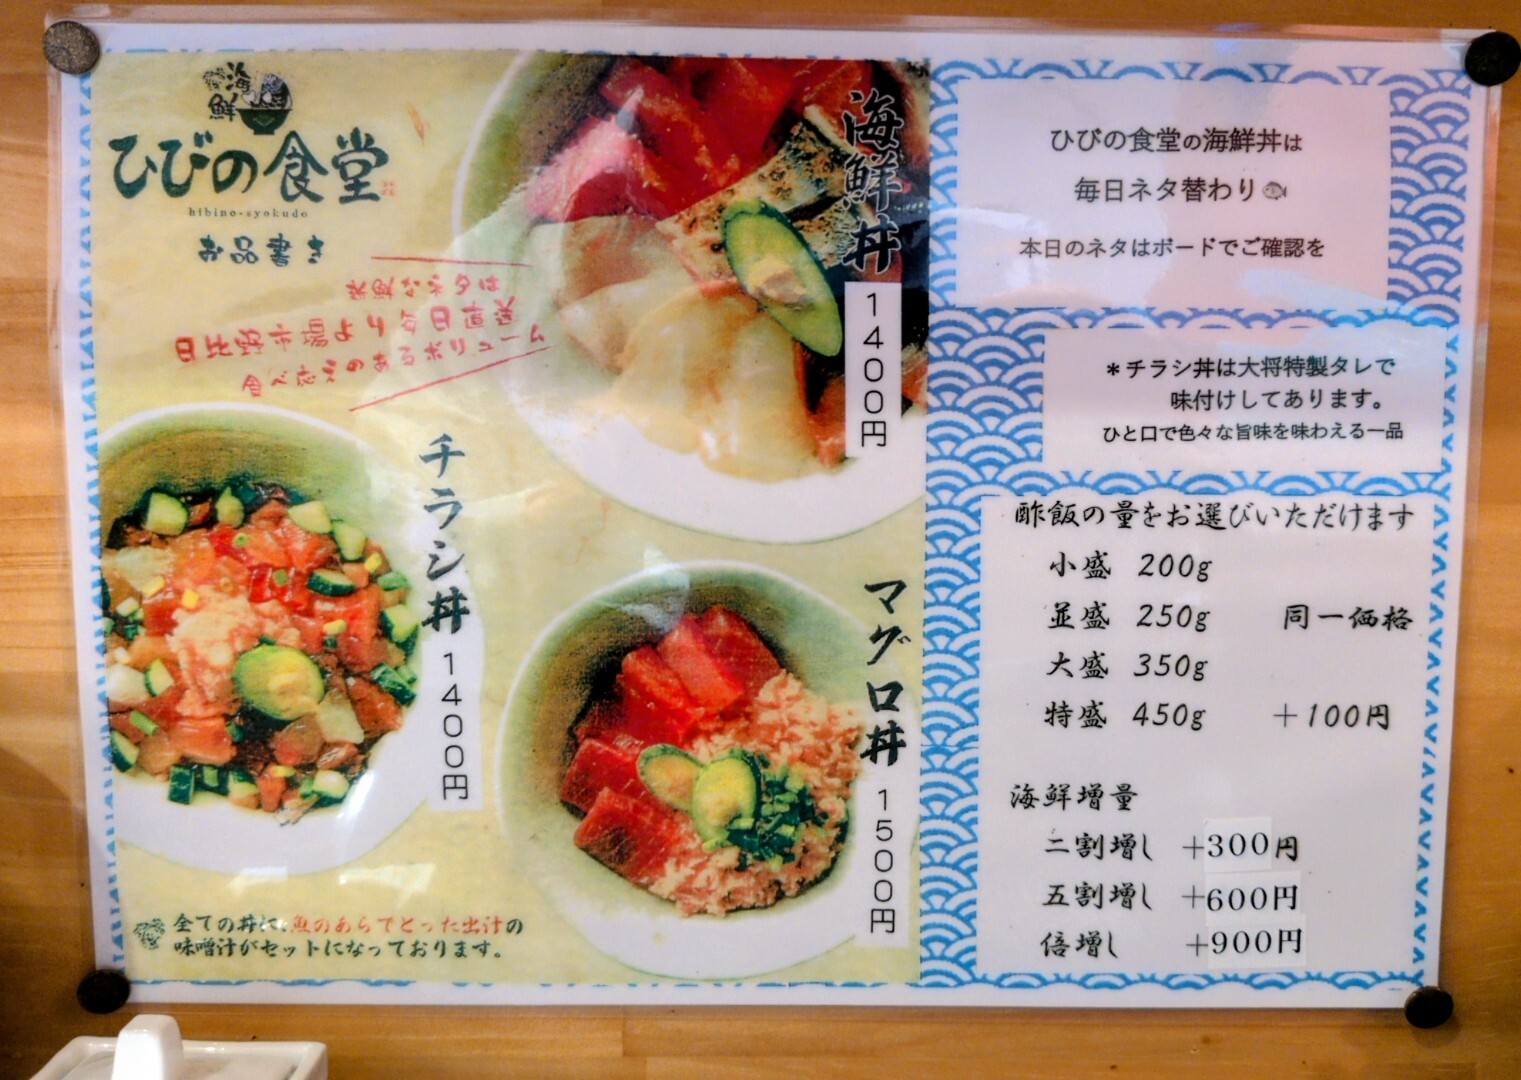 海鮮
ひびの食堂
hibino-syokudo
お品書き
新鮮なネタは
日比野市場より毎日直送
食べ応えのあるボリューム
海鮮丼
1400円
チラシ丼
1400円
マグロ丼
1500円
全ての丼に魚のあらでとった出汁の
味噌汁がセットになっております。
ひびの食堂の海鮮丼は
毎日ネタ替わり
本日のネタはボードでご確認を
＊チラシ丼は大将特製タレで
味付けしてあります。
ひと口で色々な旨味を味わえる一品
酢飯の量をお選びいただけます
小盛 200g
並盛 250g 同一価格
大盛 350g
特盛 450g ＋100円
海鮮増量
二割増し ＋300円
五割増し ＋600円
倍増し ＋900円